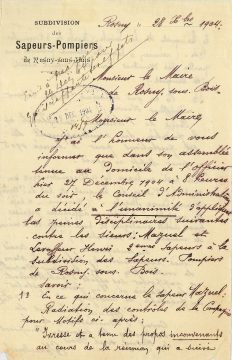 SUBDIVISION
des
Sapeurs-Pompiers
de Rosny-sous-Bois
Rosny, 28 Xbre 1904.
Monsieur le Maire
de Rosny-sous-Bois.
Monsieur le Maire,
J'ai l'honneur de vous
informer que dans son assemblée
tenue au Domicile de l'Officier
hier 27 Décembre 1904 à 8 heures
du soir, le Conseil d'Administration
a décidé à l'unanimité d'appliquer
les peines disciplinaires suivantes
contre les sieurs: Mazuel et
Levasseur Henri 2èmes Sapeurs à la
subdivision des Sapeurs-Pompiers
de Rosny-sous-Bois.
Savoir:
1º En ce qui concerne le Sapeur Mazuel,
Radiation des controles de la Compagnie
pour motifs ci-après:
Ivresse et a tenu des propos inconvenants
au cours de la réunion qui a suivi